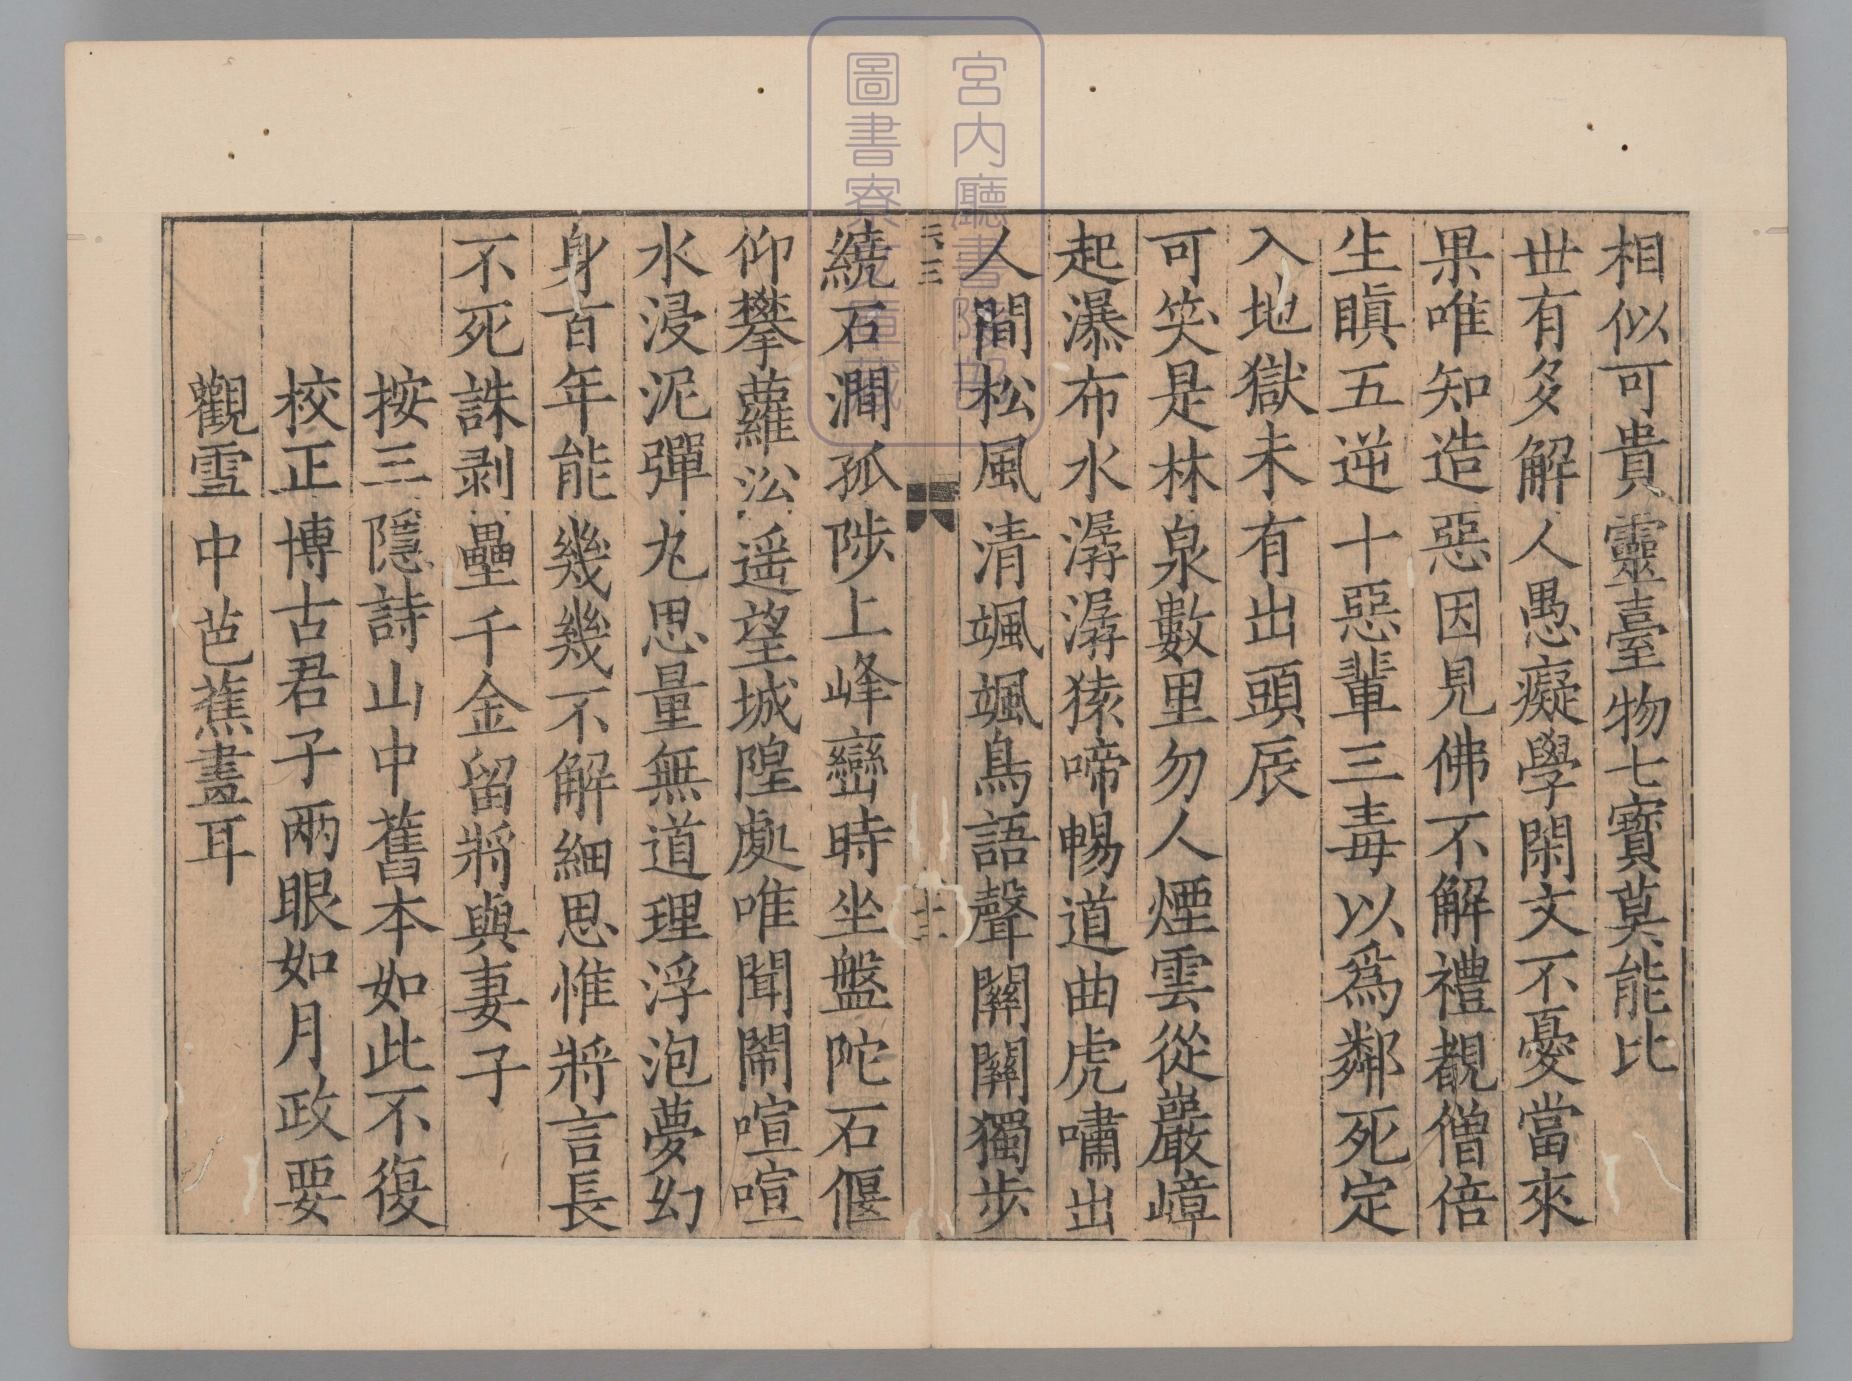 相似可貴靈臺物七寶莫能比
世有多解人愚癡學閑文不憂當來
果唯知造惡因見佛不解禮覩僧倍
生瞋五逆十惡輩三毒以爲鄰死定
入地獄未有出頭辰
可笑是林泉數里勿人煙雲從巖嶂
起瀑布水潺潺猿啼暢道曲虎嘯出
人間松風清颯颯鳥語聲關關獨步
繞石澗孤陟上峰巒時坐盤陀石偃
仰攀蘿㳂遥望城隍處唯聞鬧喧喧
水浸泥彈丸思量無道理浮泡夢幻
身百年能幾幾不解細思惟將言長
不死誅剥壘千金留將與妻子
按三隱詩山中舊本如此不復
校正博古君子兩眼如月政要
觀雪中芭蕉畫耳
宮内廳書陵部
圖書寮文庫藏